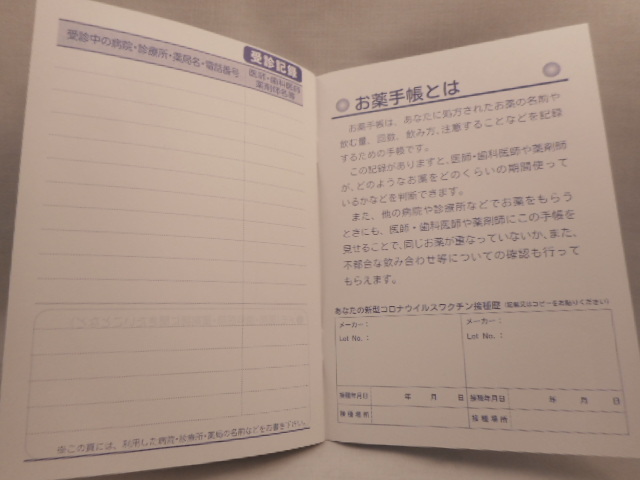 受診記録
受診中の病院・診療所・薬局名・電話番号
医師・歯科医師
薬剤師名等
※この頁には、利用した病院・診療所・薬局の名前などをお書き下さい。
お薬手帳とは
お薬手帳は、あなたに処方されたお薬の名前や
飲む量、回数、飲み方、注意することなどを記録
するための手帳です。
この記録がありますと、医師・歯科医師や薬剤師
が、どのようなお薬をどのくらいの期間使って
いるかなどを判断できます。
また、他の病院や診療所などでお薬をもらう
ときにも、医師・歯科医師や薬剤師にこの手帳を
見せることで、同じお薬が重なっていないか、また、
不都合な飲み合わせ等についての確認も行って
もらえます。
あなたの新型コロナウイルスワクチン接種歴（記載又はコピーをお貼りください）
メーカー： メーカー：
Lot No.： Lot No.：
接種年月日 年 月 日 接種年月日 年 月 日
接種場所 接種場所